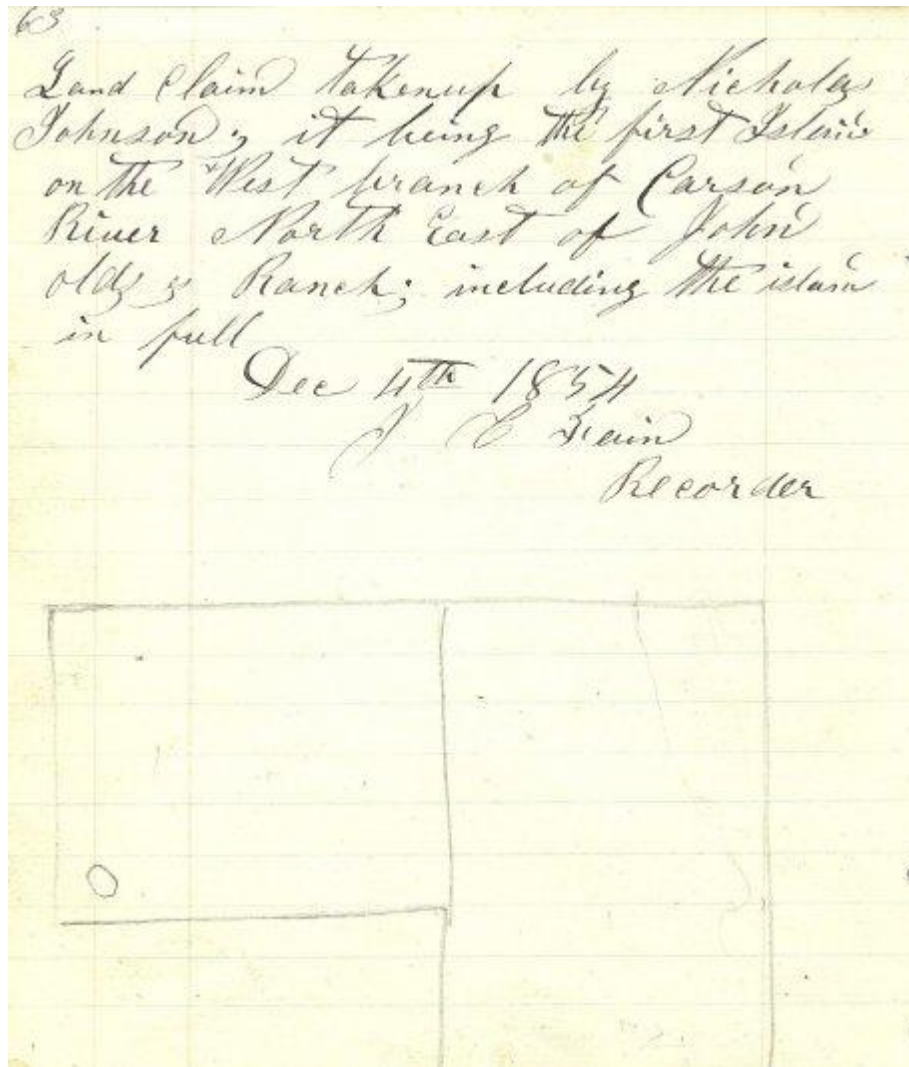 63
Land Claim takenup by Nicholas
Johnson; it being the first Islan
on the West branch of Carson
River North East of John
olds,s Ranch; including the islan
in full
Dec 4th 1854
J C Fain
Recorder